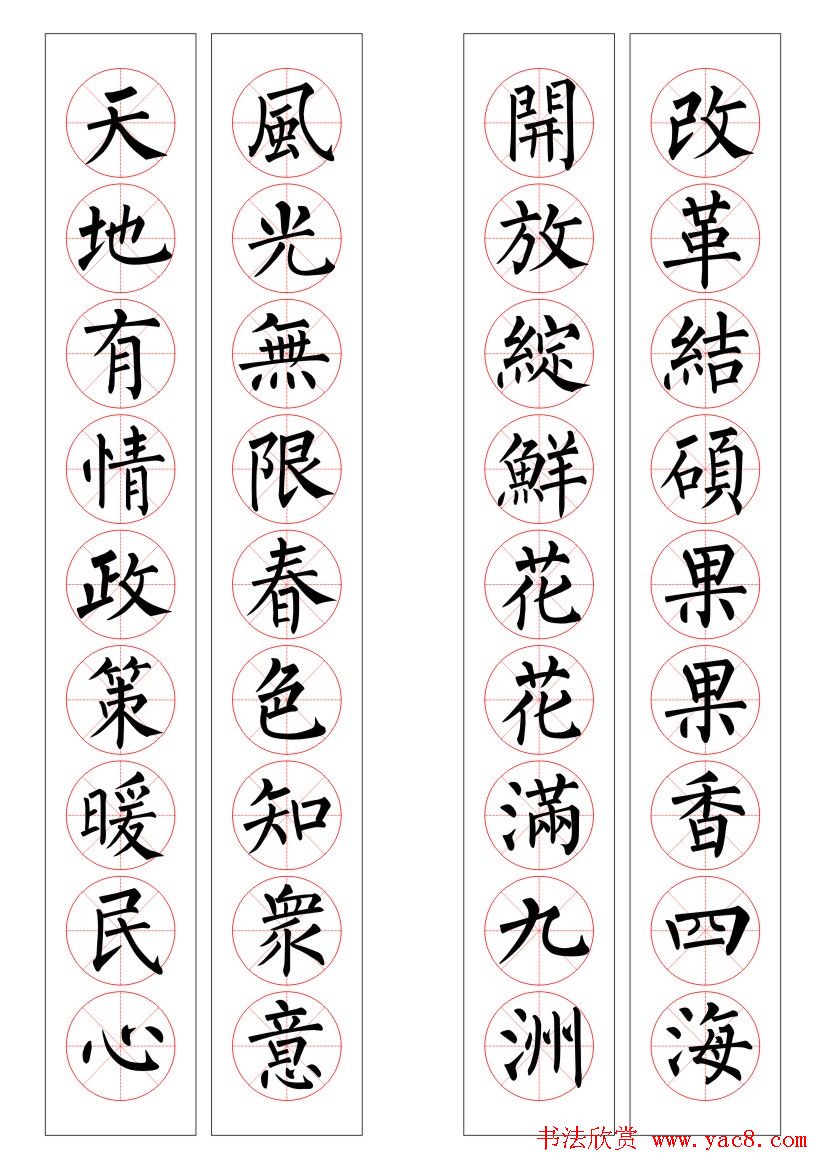 改革結碩果果香四海
開放綻鮮花花滿九洲
風光無限春色知衆意
天地有情政策暖民心
书法欣赏 www.yac8.com